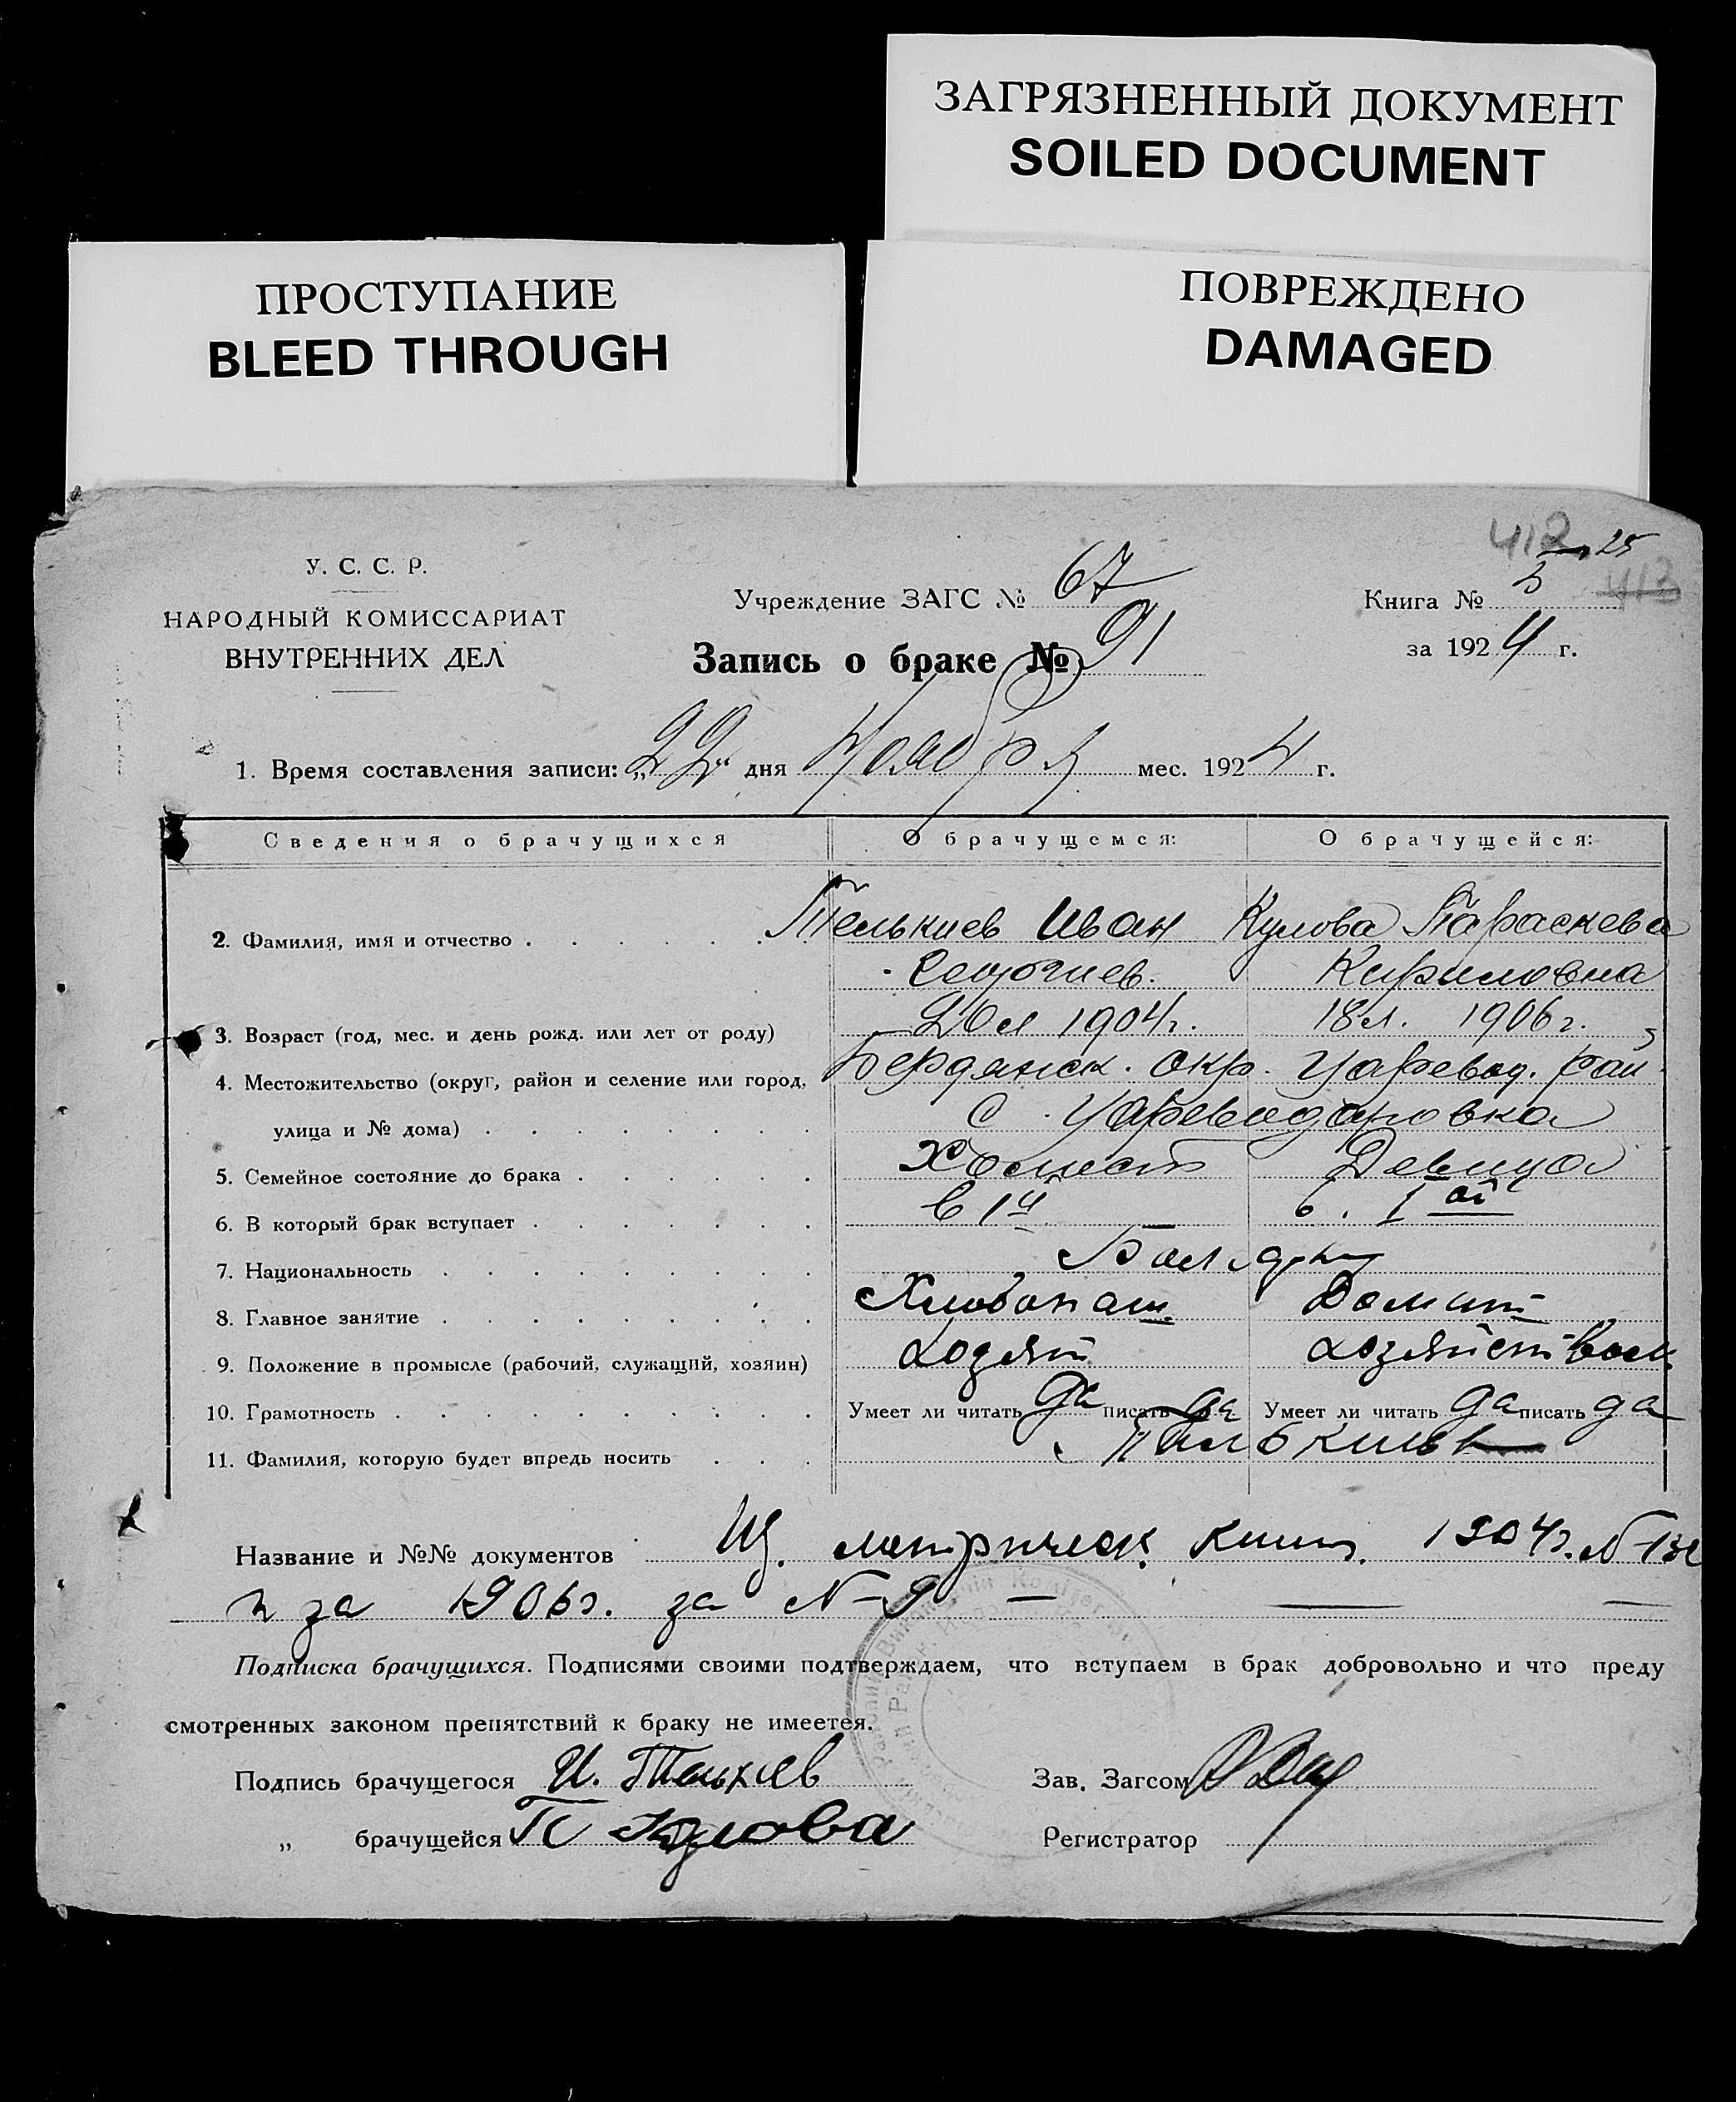 ЗАГРЯЗНЕННЫЙ ДОКУМЕНТ
SOILED DOCUMENT
ПРОСТУПАНИЕ
BLEED THROUGH
ПОВРЕЖДЕНО
DAMAGED
412 25
413
У. С. С. Р.
НАРОДНЫЙ КОМИССАРИАТ
ВНУТРЕННИХ ДЕЛ
Учреждение ЗАГС № 67
Запись о браке № 91
Книга № 5
за 1924 г.
1. Время составления записи: „22“ дня Ноября мес. 1924 г.
Сведения о брачущихся О брачущемся: О брачущейся:
2. Фамилия, имя и отчество . Телькиев Иван Кулова Параскева
Георгиев. Кириловна
3. Возраст (год, мес. и день рожд. или лет от роду) 20 л 1904 г. 18 л. 1906 г.
4. Местожительство (округ, район и селение или город, Бердянск. окр. Царевод. рай
улица и № дома) с. Цареводаровка
5. Семейное состояние до брака Холост Девица
6. В который брак вступает в 1й в. 1ой
7. Национальность Болгары
8. Главное занятие Хлебопаш. Домашн
9. Положение в промысле (рабочий, служащий, хозяин) хозяин хозяйством
10. Грамотность Умеет ли читать да писать да Умеет ли читать да писать да
11. Фамилия, которую будет впредь носить
Название и №№ документов Из. метрическ. книг. 1904 г. №
и за 1906 г. за № 9
Подписка брачущихся. Подписями своими подтверждаем, что вступаем в брак добровольно и что преду
смотренных законом препятствий к браку не имеется.
Подпись брачущегося И. Телькиев Зав. Загсом
„ брачущейся П Кулова Регистратор